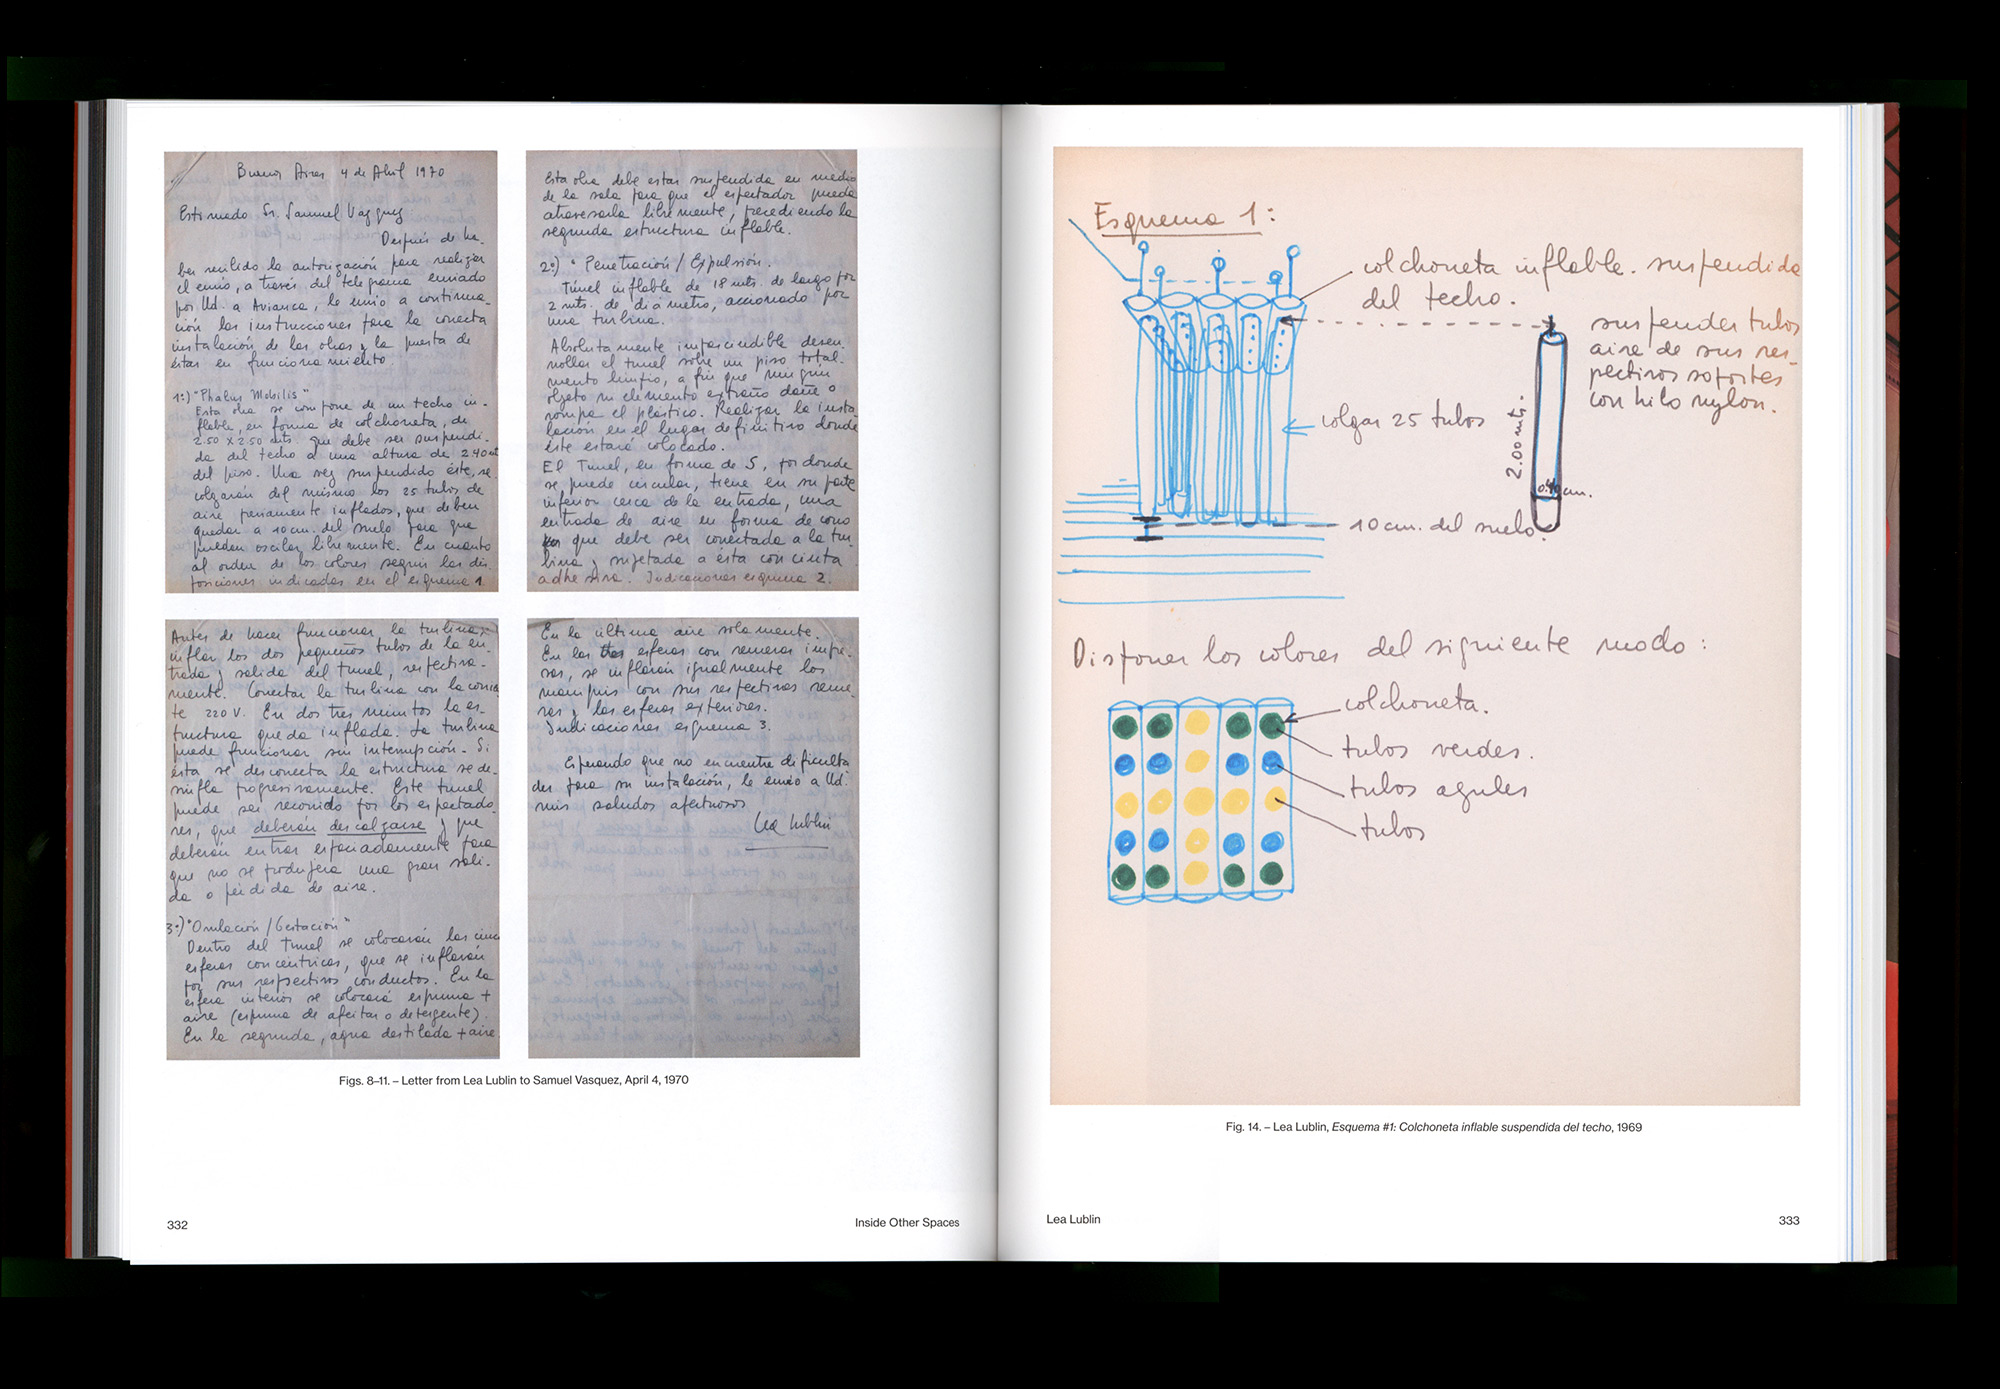 Buenos Aires 4 de Abril 1970
Estimado Sr. Samuel Vazquez
Después de ha-
ber recibido la autorización para realizar
el envío, a través del telegrama enviado
por Ud. a Avianca, le envío a continua-
ción las instrucciones para la correcta
instalación de las obras y la puesta de
éstas en funcionamiento.
1º) "Phalus Mobilis"
Esta obra se compone de un techo in-
flable, en forma de colchoneta, de
2.50 x 2.50 mts. que debe ser suspendi-
da del techo a una altura de 2.40 mt
del piso. Una vez suspendido éste, se
colgarán del mismo los 25 tubos de
aire previamente inflados, que deben
quedar a 10 cm. del suelo para que
puedan oscilar libremente. En cuanto
al orden de los colores según las dis
posiciones indicadas en el esquema 1.
Esta obra debe estar suspendida en medio
de la sala para que el espectador pueda
atravesarla libremente, precediendo la
segunda estructura inflable.
2º) " Penetración / Expulsión.
Túnel inflable de 18 mts. de largo por
2 mts. de diámetro, accionado por
una turbina.
Absolutamente imprescindible desen-
rollar el tunel sobre un piso total-
mente limpio, a fin que ningún
objeto ni elemento extraño dañe o
rompa el plástico. Realizar la insta
lación en el lugar definitivo donde
éste estará colocado.
El Tunel, en forma de S, por donde
se puede circular, tiene en su parte
inferior cerca de la entrada, una
entrada de aire en forma de cono
que debe ser conectada a la tur-
bina y sujetada a ésta con cinta
adhesiva. Indicaciones esquema 2.
Antes de hacer funcionar la turbina,
inflar los dos pequeños tubos de la en-
trada y salida del tunel, respectiva-
mente. Conectar la turbina con la corrien
te 220 V. En dos tres minutos la es-
tructura queda inflada. La turbina
puede funcionar sin interrupción. Si
ésta se desconecta la estructura se de-
sinfla progresivamente. Este tunel
puede ser recorrido por los espectado
res, que deberán descalzarse y que
deberán entrar espaciadamente para
que no se produzca una gran sali-
da o pérdida de aire.
3º) "Ovulación / Gestación"
Dentro del Tunel se colocarán las cinco
esferas concéntricas, que se inflarán
por sus respectivos conductos. En la
esfera interior se colocará espuma +
aire (espuma de afeitar o detergente).
En la segunda, agua destilada + aire
En la última aire solamente.
En las tres esferas con remeras impre-
sas, se inflarán igualmente los
maniquis con sus respectivas reme-
ras y las esferas exteriores.
Indicaciones esquema 3.
Esperando que no encuentre dificulta
des para su instalación, le envío a Ud.
mis saludos afectuosos
Lea Lublin
Figs. 8–11. – Letter from Lea Lublin to Samuel Vasquez, April 4, 1970
332
Inside Other Spaces
Esquema 1:
colchoneta inflable. suspendida
del techo.
suspender tubos
aire de sus res-
pectivos soportes
con hilo nylon.
colgar 25 tubos
2.00 mts.
0.40 cm.
10 cm. del suelo.
Disponer los colores del siguiente modo:
colchoneta.
tubos verdes.
tubos azules
tubos
Fig. 14. – Lea Lublin, Esquema #1: Colchoneta inflable suspendida del techo, 1969
Lea Lublin
333